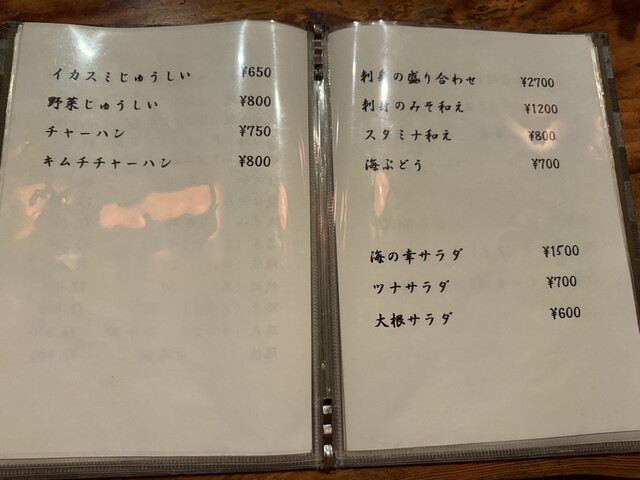 イカスミじゅうしい ¥650
野菜じゅうしい ¥800
チャーハン ¥750
キムチチャーハン ¥800
刺身の盛り合わせ ¥2700
刺身のみそ和え ¥1200
スタミナ和え ¥800
海ぶどう ¥700
海の幸サラダ ¥1500
ツナサラダ ¥700
大根サラダ ¥600